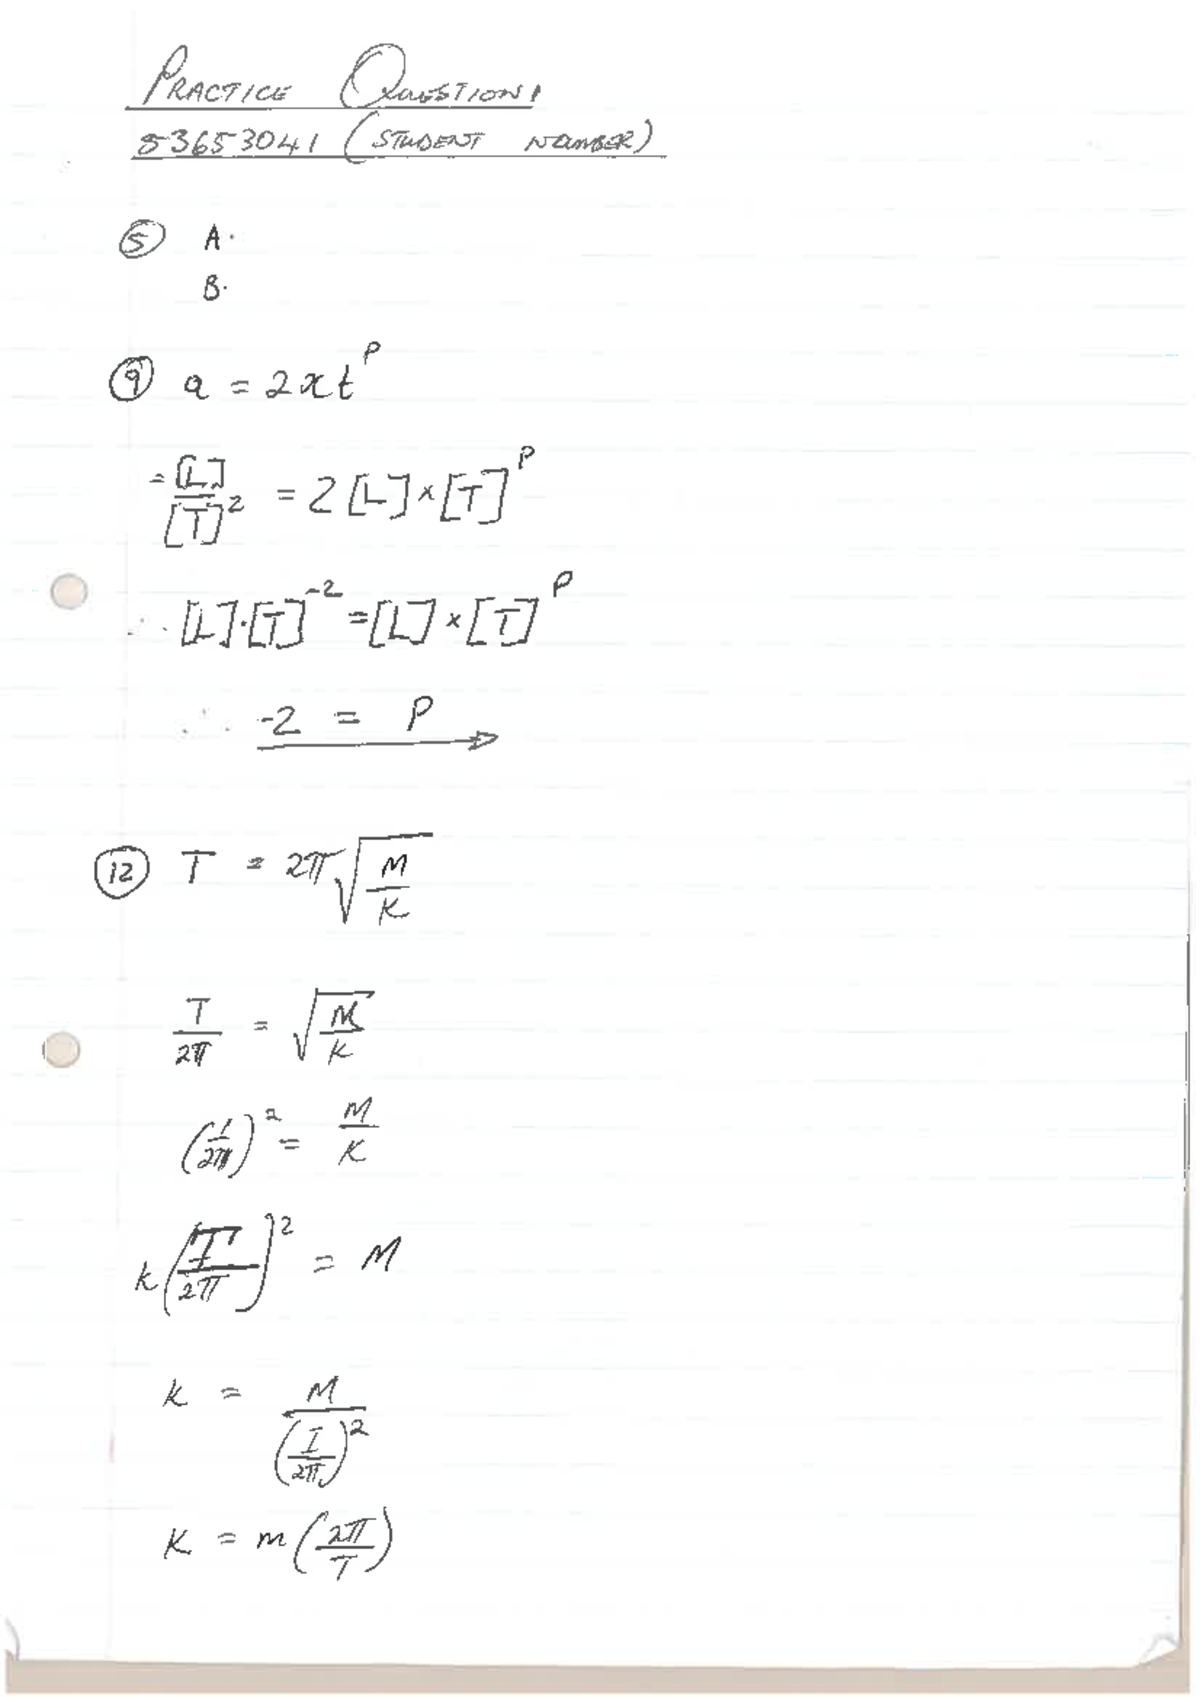 PRACTICE QUESTION 1
53653041 (STUDENT NUMBER)
(5) A.
B.
(9) a = 2xt^P
= [L]/[T]^2 = 2[L]×[T]^P
∴ [L]·[T]^-2 = [L]×[T]^P
∴ -2 = P
(12) T = 2π√(M/K)
T/2π = √(M/K)
(1/2π)^2 = M/K
k(T/2π)^2 = M
K = M/(I/2π)^2
K = m(2π/T)